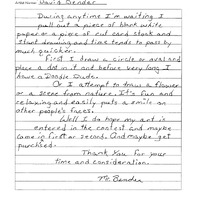 David Bender
During anytime I'm waiting I
pull out a piece of blank white
paper or a piece of cut card stock and
start drawing and time tends to pass by
much quicker.
First I draw a circle or oval and
place a dot in it and before very long I
have a Doodle Dude.
Or I attempt to draw a flower
or a scene from nature. It's fun and
relaxing and easily puts a smile on
other people's faces.
Well I do hope my art is
entered in the contest and maybe
come in first or second. And maybe get
purchased.
Thank You for your
time and consideration.
Mr. Bender